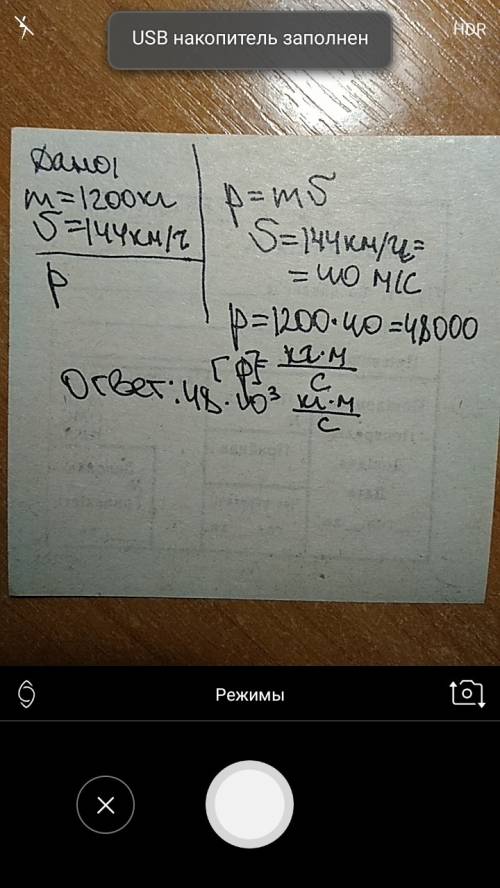 USB накопитель заполнен
HDR
Дано:
m=1200кг
S=144км/ч
p
p=mS
S=144км/ч=
=40 м/с
p=1200·40=48000
[p]= кг·м
с
Ответ: 48·10³ кг·м
с
Режимы